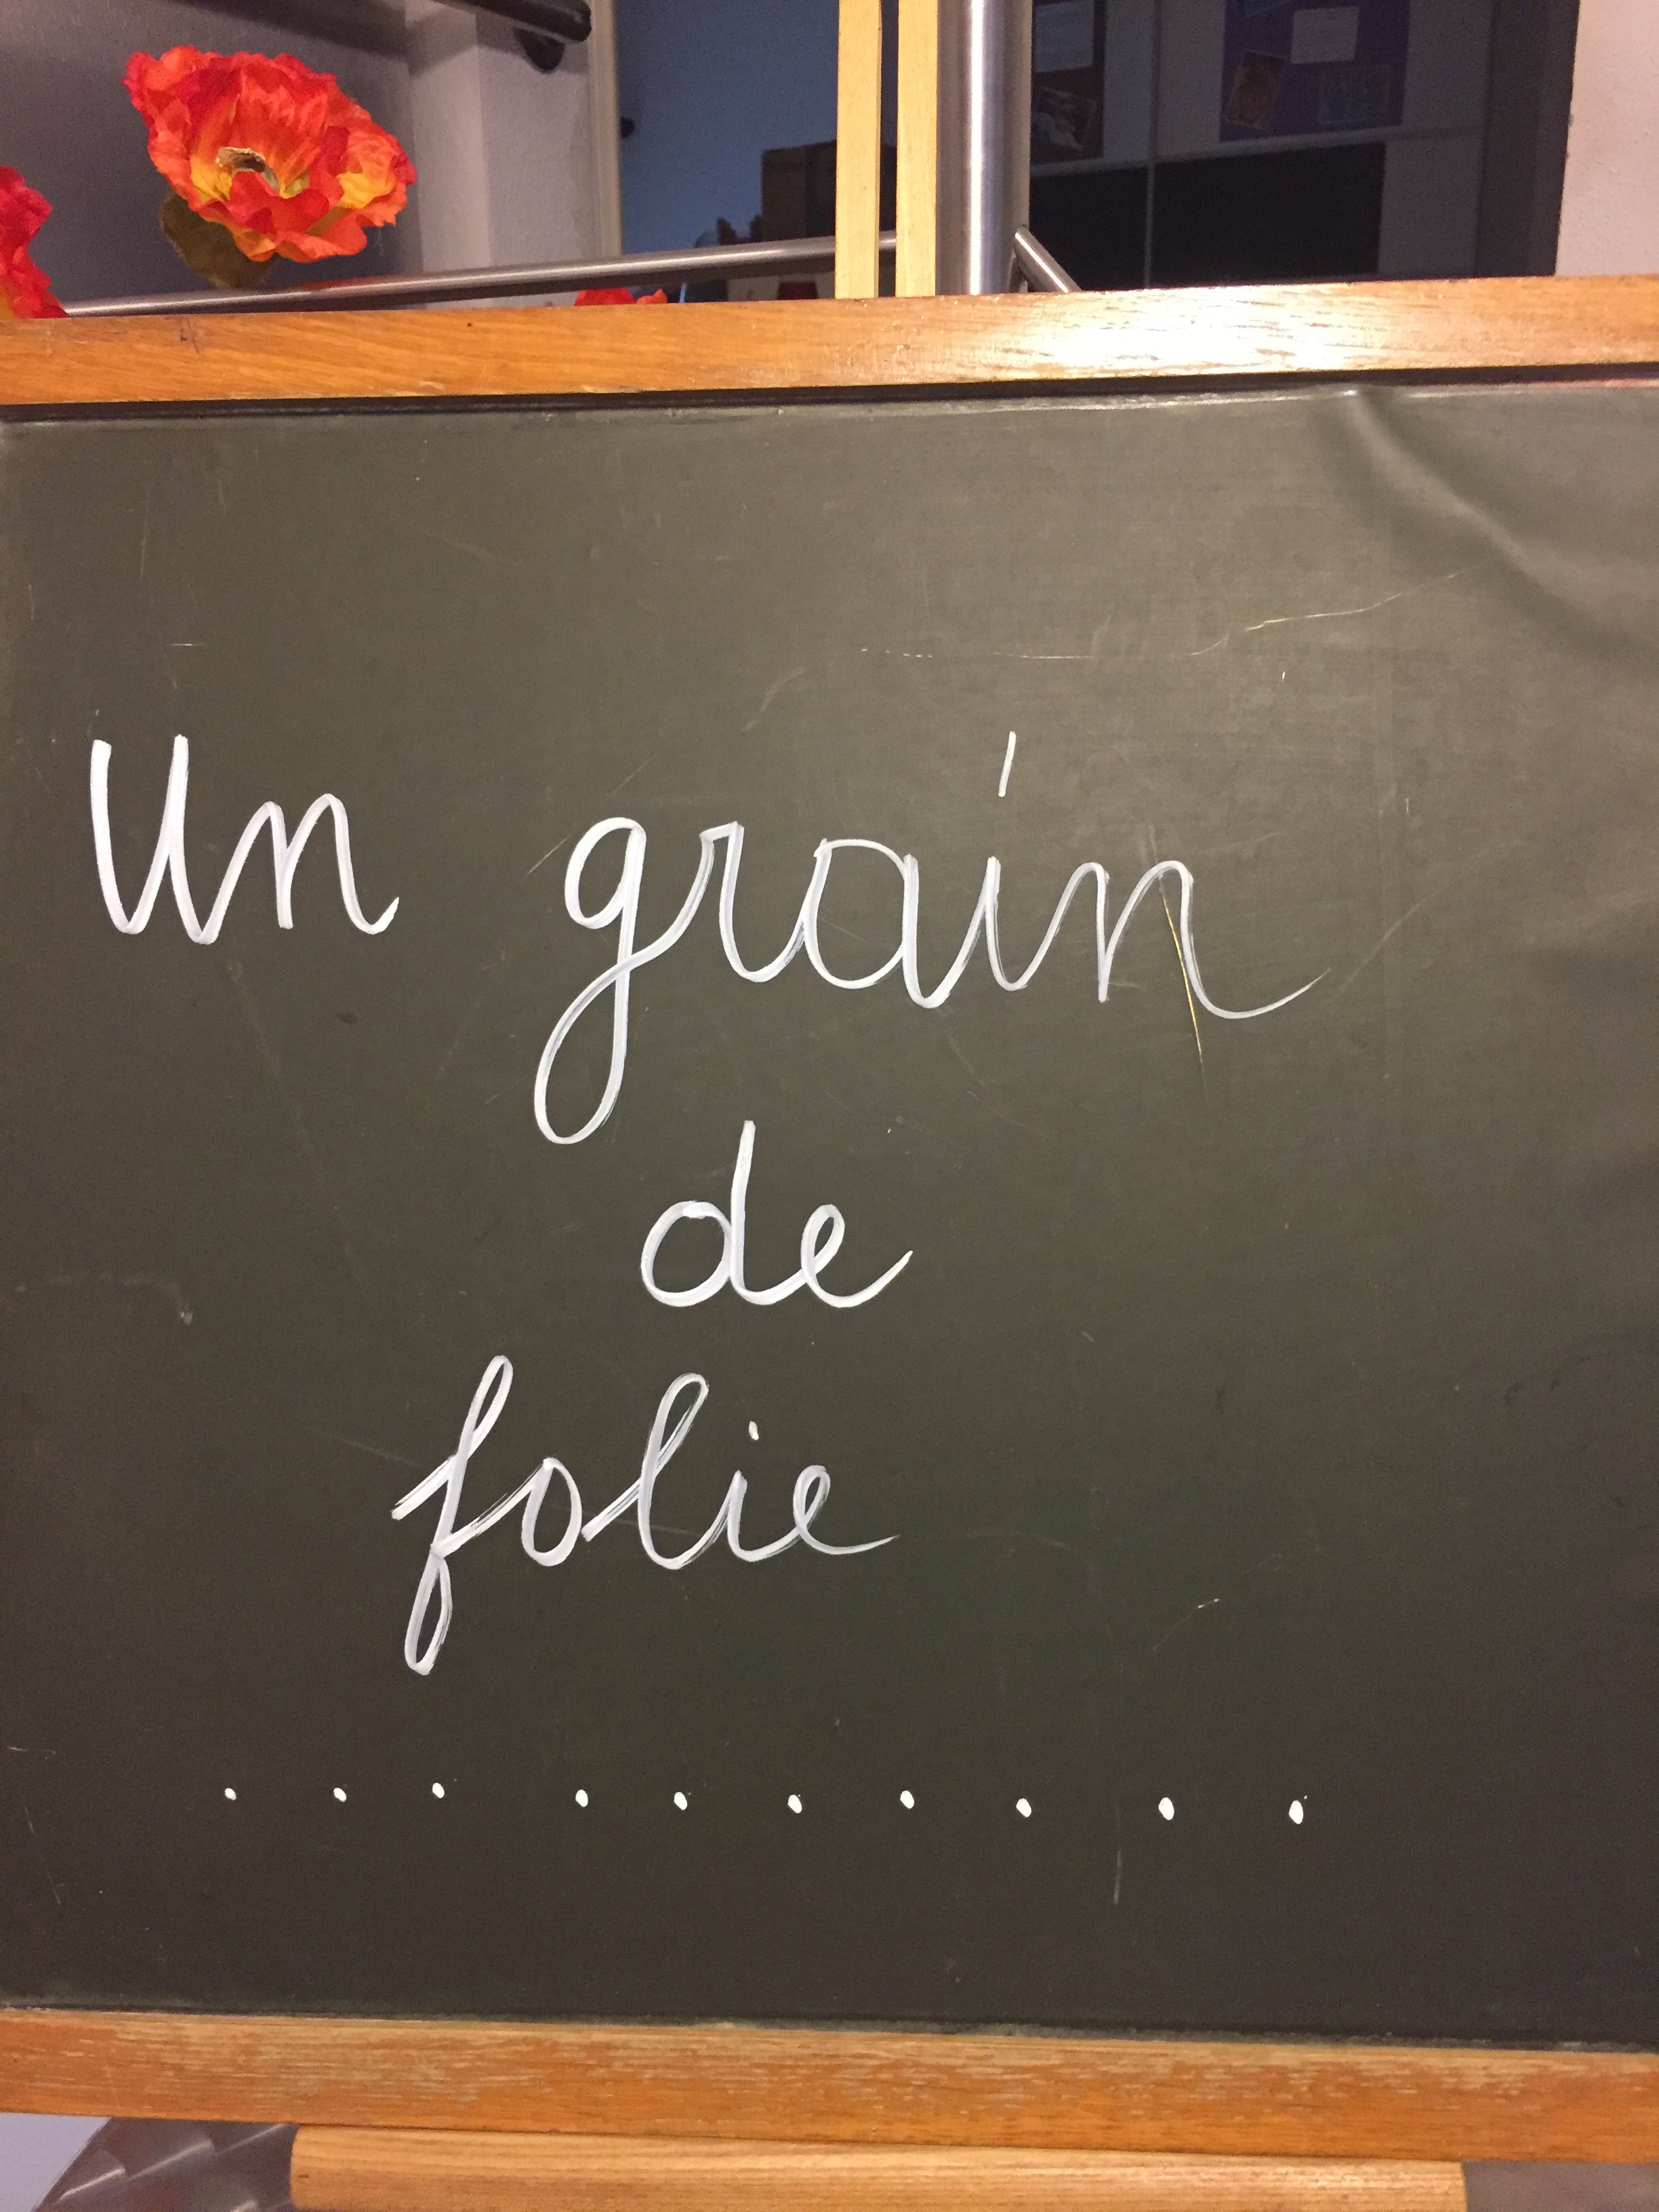 Un grain
de
folie
..........